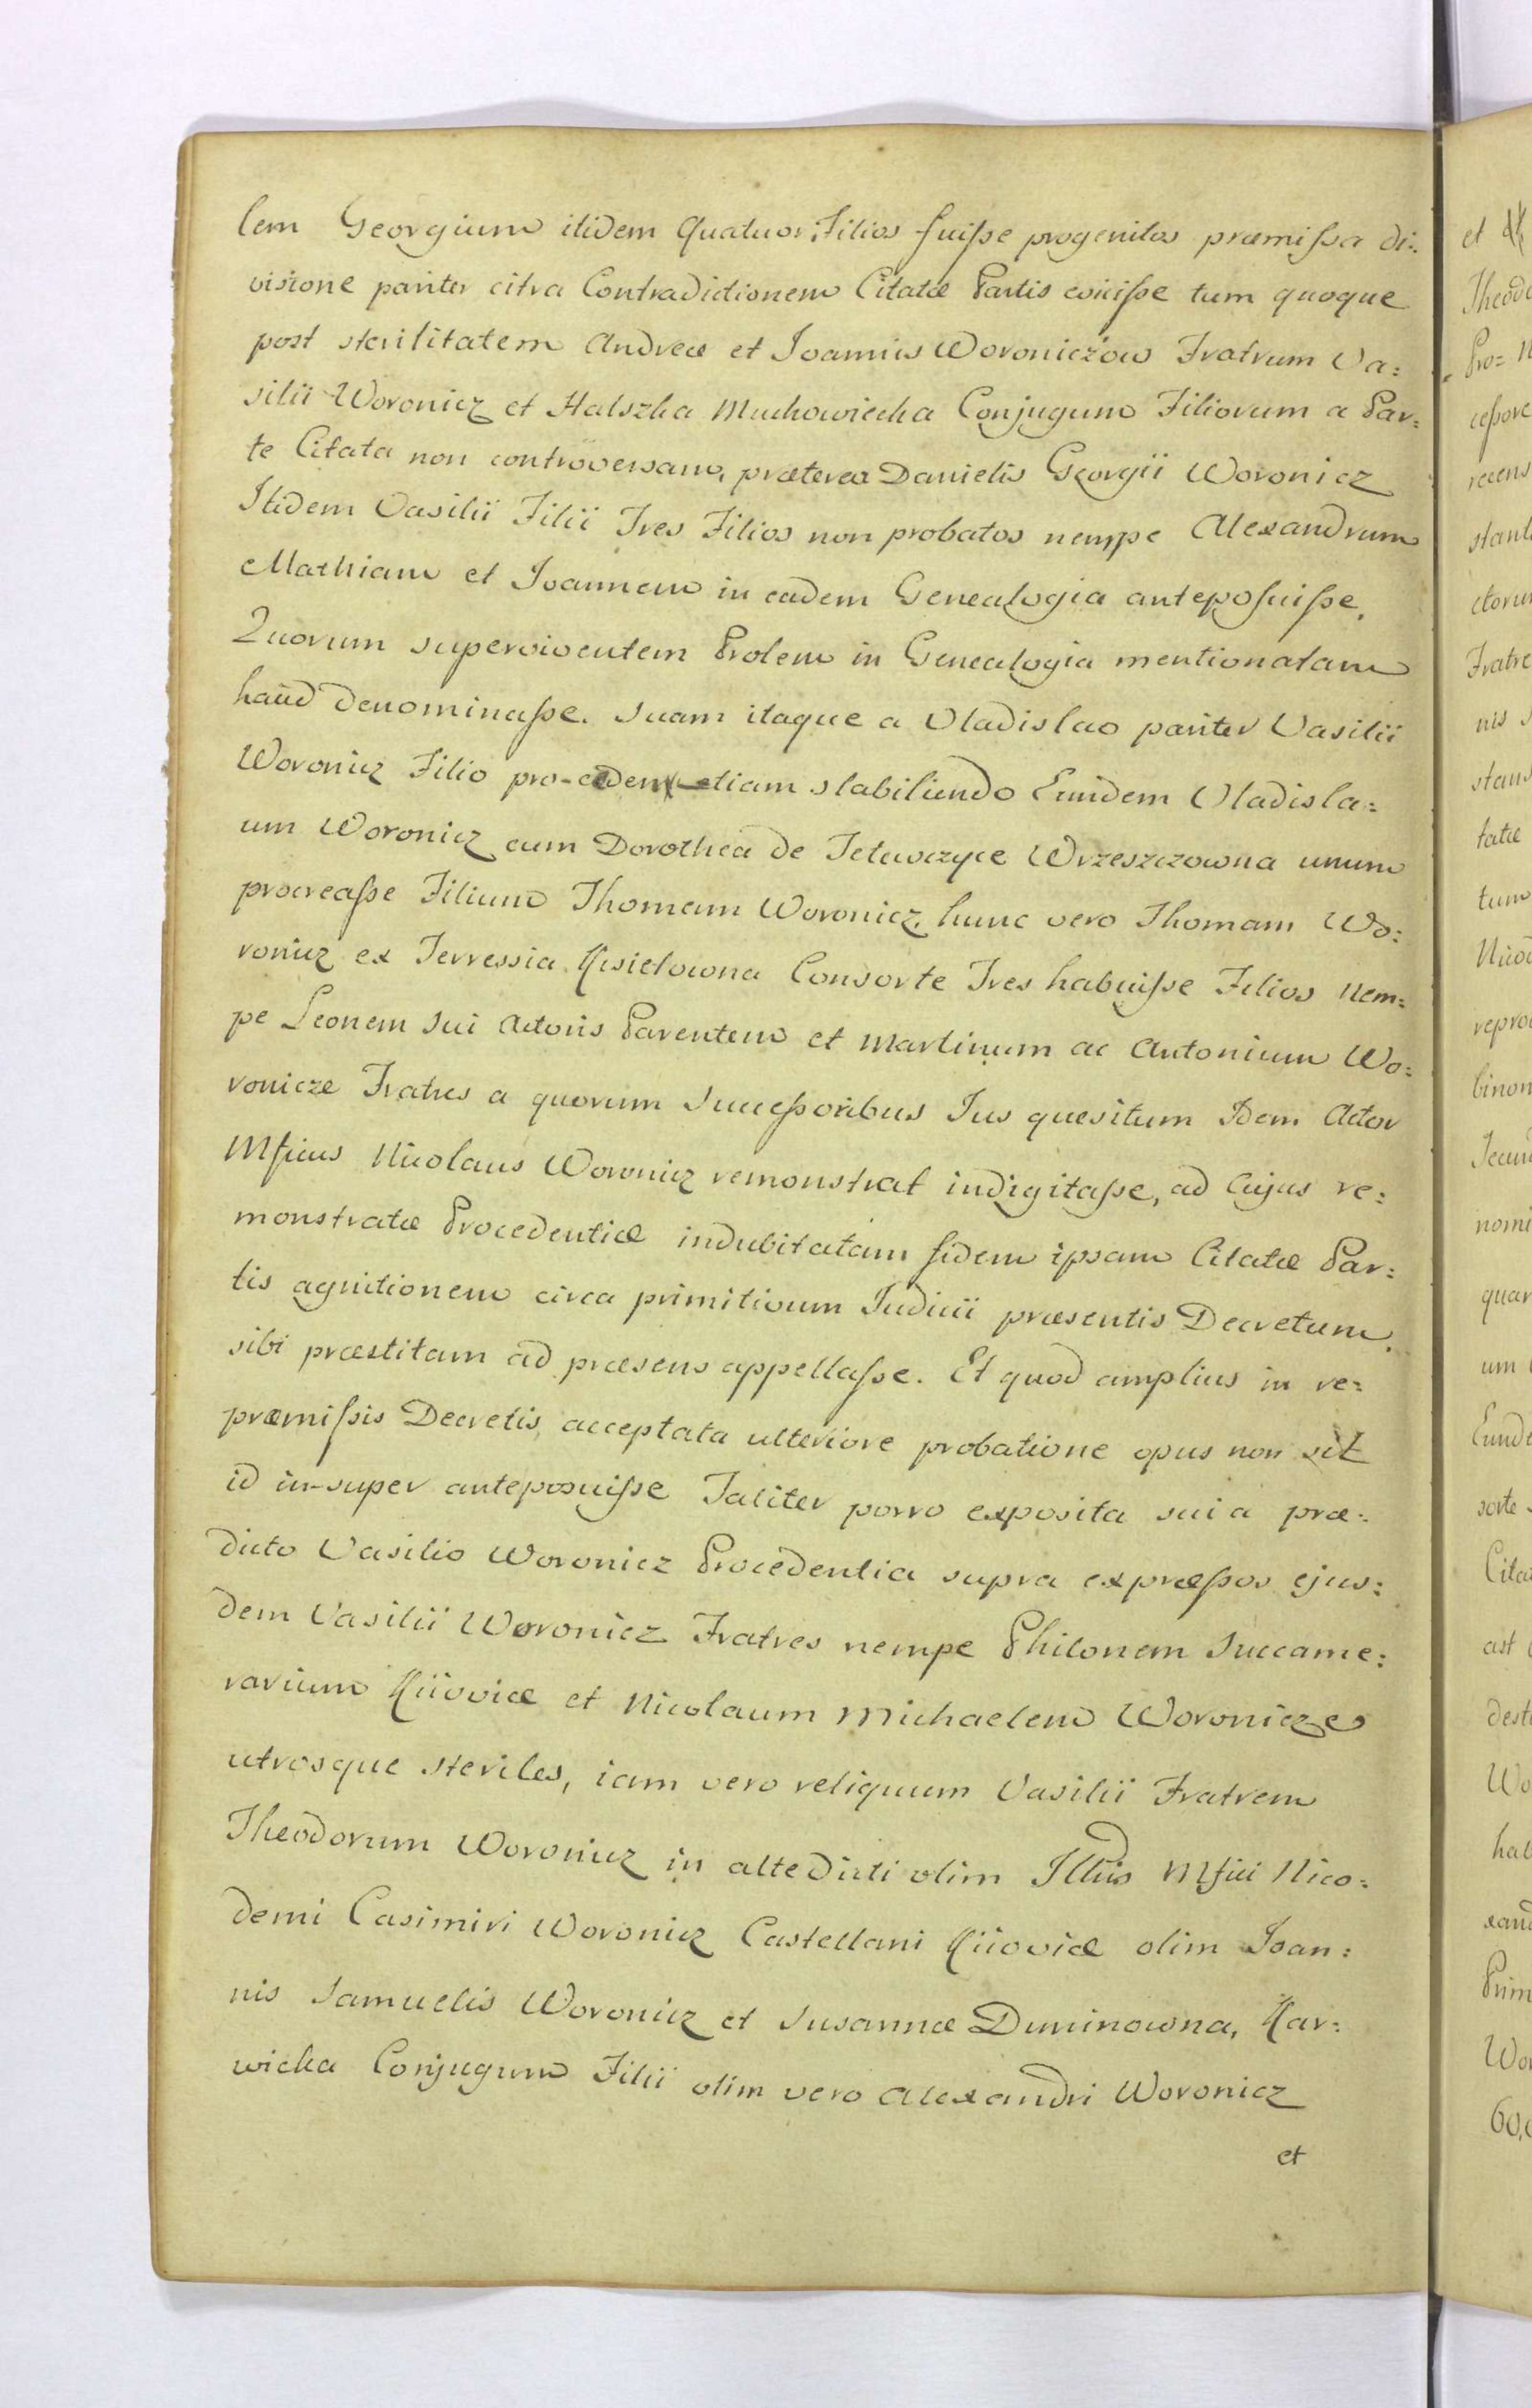 lem Georgium itidem Quatuor Filios fuisse progenitos præmissa di:
visione pariter citra Contradictionem Citatæ Partis evicisse tum quoque
post sterilitatem Andreæ et Joannis Woroniczow Fratrum Va:
silii Woronicz et Halszka Muchowiecka Conjugum Filiorum a Par:
te Citata non controversam, præterea Danielis Georgii Woronicz
Itidem Vasilii Filii Tres Filios non probatos nempe Alexandrum
Mathiam et Joannem in eadem Genealogia anteposuisse,
Quorum superviventem Prolem in Genealogia mentionatam
haud denominasse. Suam itaque a Vladislao pariter Vasilii
Woronicz Filio pro-eadem etiam stabiliendo Eundem Vladisla:
um Woronicz cum Dorothea de Jelewczyce Wrzeszczowna unum
procreasse Filium Thomam Woronicz, hunc vero Thomam Wo:
ronicz ex Terressia Kisielowna Consorte Tres habuisse Filios Nem:
pe Leonem sui Actoris Parentem et Martinum ac Antonium Wo:
ronicze Fratres a quorum Successoribus Jus quesitum Idem Actor
Mficus Nicolaus Woronicz remonstrat indigitasse, ad Cujus re:
monstratæ Procedentiæ indubitatam fidem ipsam Citatæ Par:
tis agnitionem circa primitivum Judicii præsentis Decretum,
sibi præstitam ad præsens appellasse. Et quod amplius in re:
præmissis Decretis, acceptata ulteriore probatione opus non sit
id in-super anteposuisse Taliter porro exposita sui a præ:
dicto Vasilio Woronicz Procedentia supra expræssos ejus:
dem Vasilii Woronicz Fratres nempe Philonem Succame:
rarium Kiioviæ et Nicolaum Michaelem Woronicze
utrosque steriles, iam vero reliquum Vasilii Fratrem
Theodorum Woronicz in altedicti olim Illris Mfici Nico:
demi Casimiri Woronicz Castellani Kiioviæ olim Joan:
nis Samuelis Woronicz et Susannæ Duninowna, Kar:
wicka Conjugum Filii olim vero Alexandri Woronicz
et